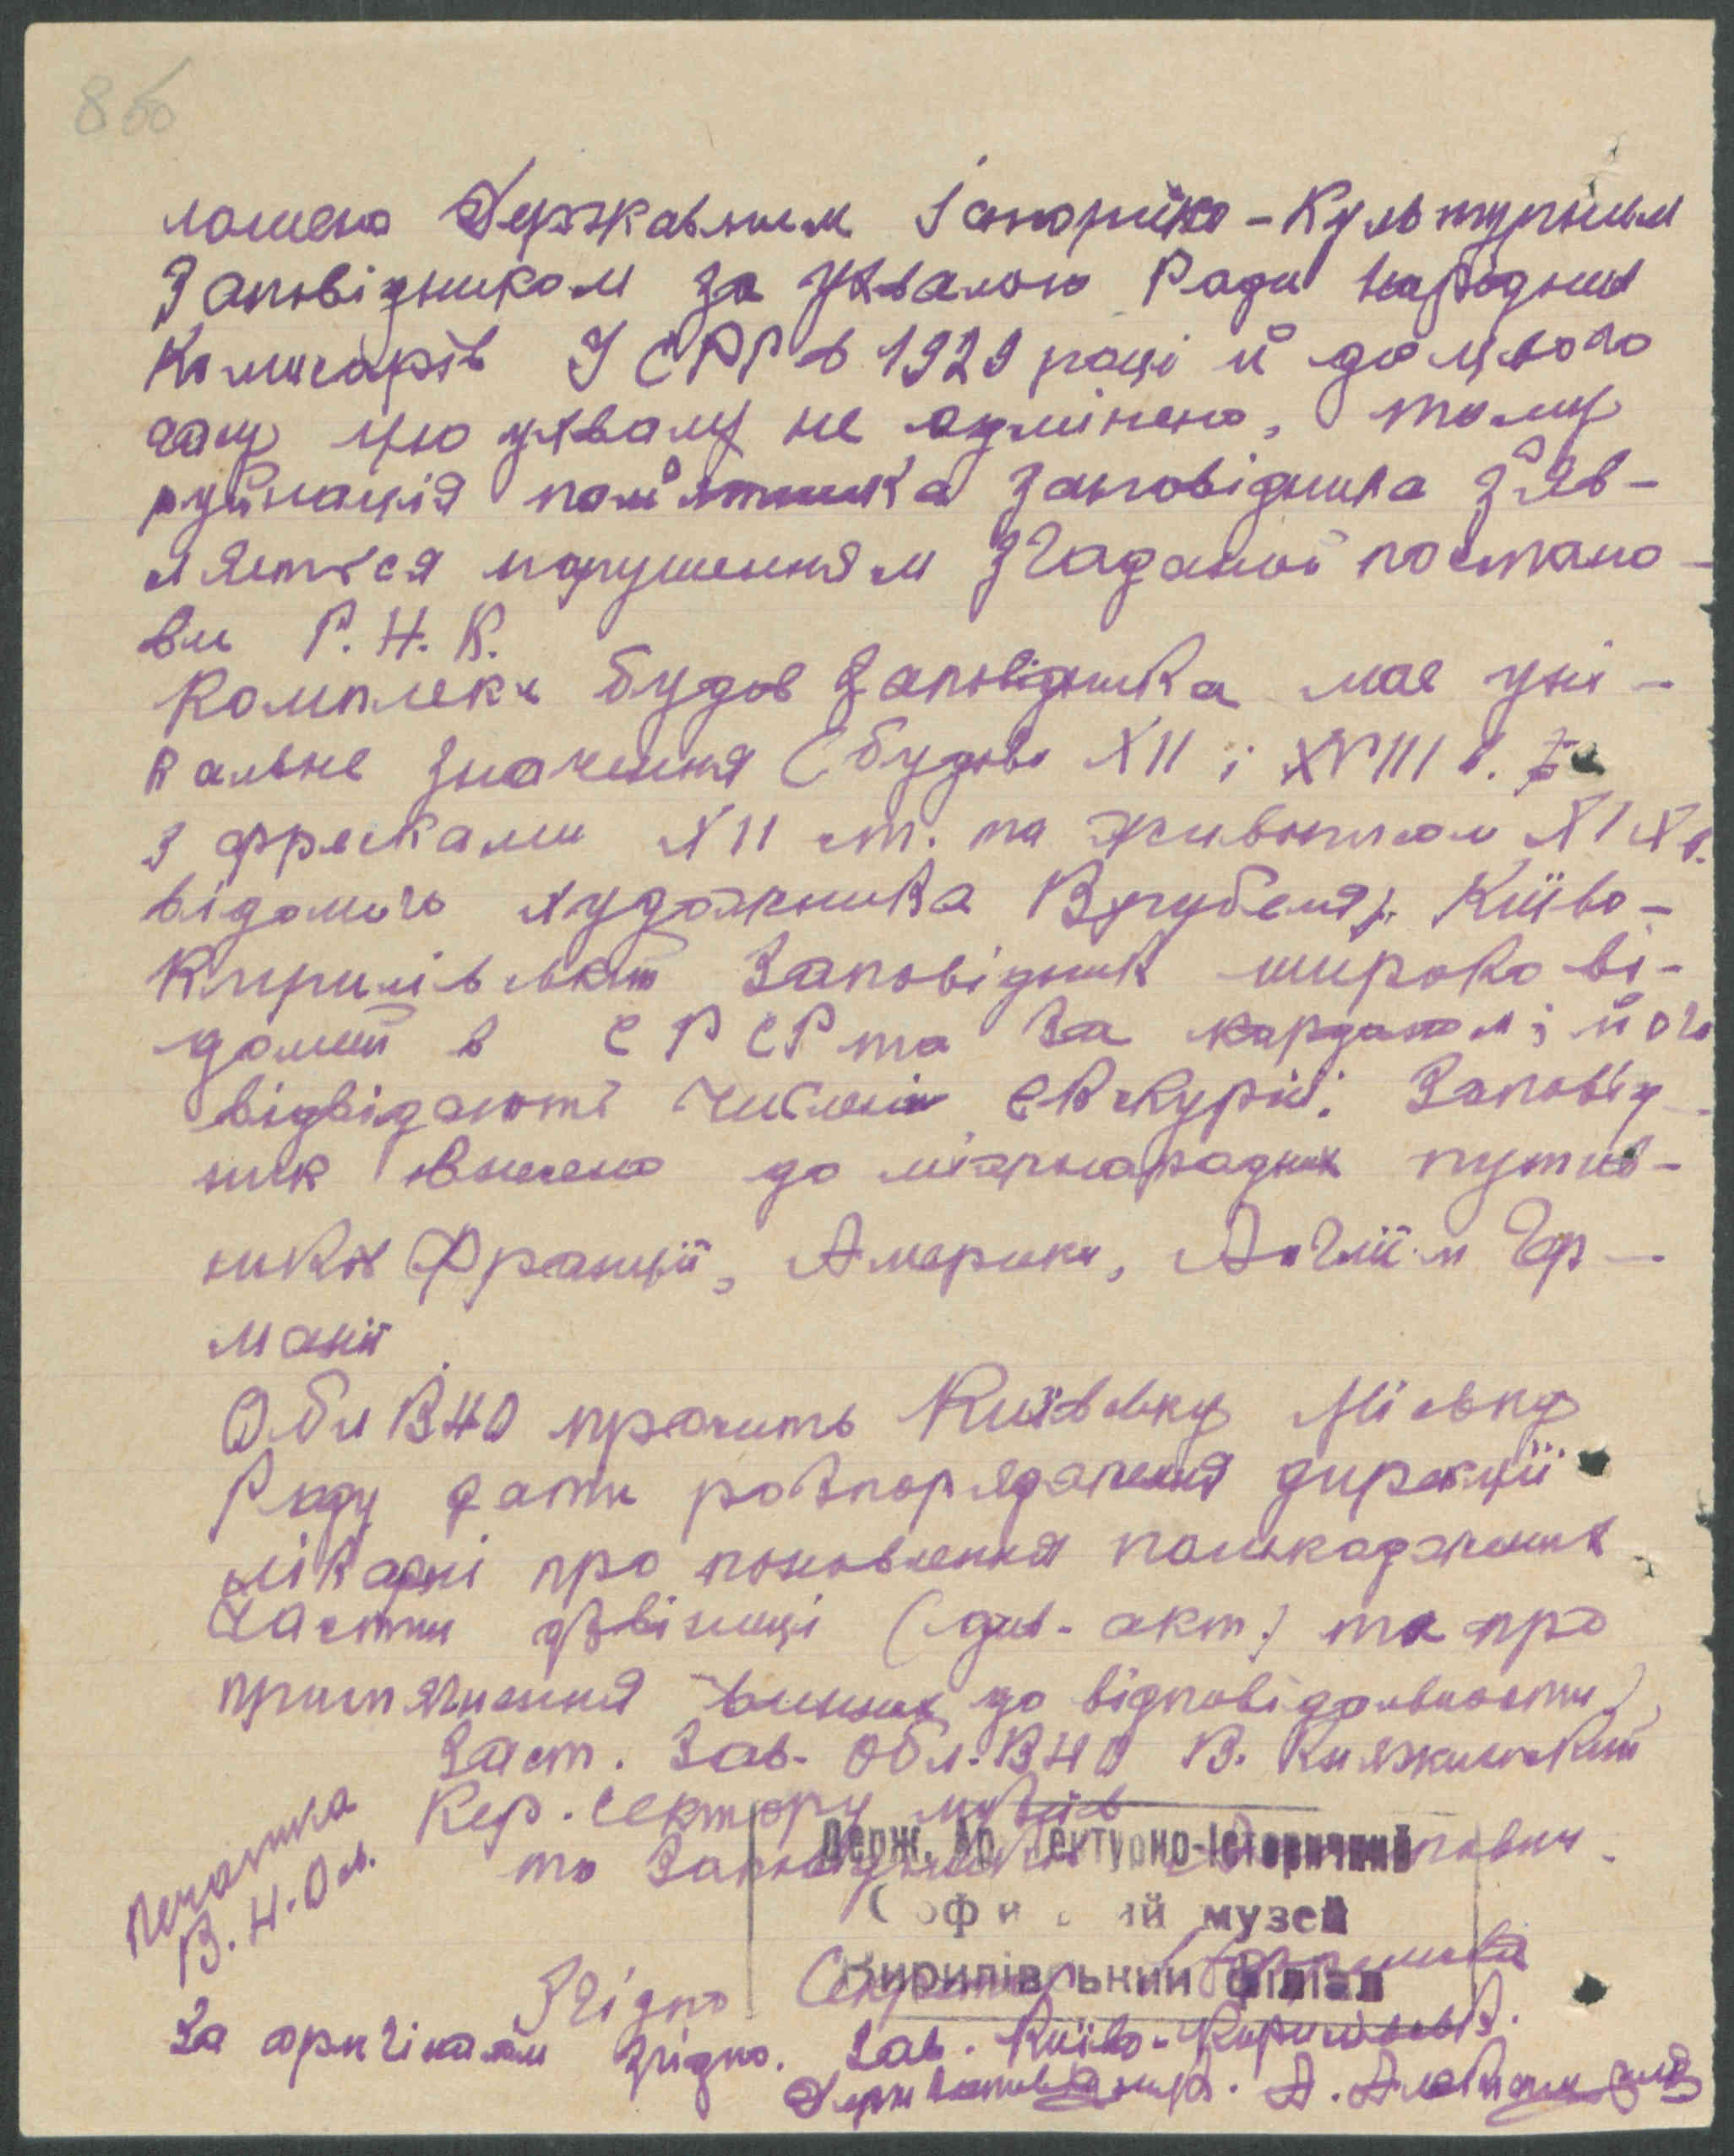 8 об
лошено Державним Історико-Культурним
Заповідником за ухвалою Ради Народних
Комисарів УСРР в 1929 році й до цього
часу цю ухвалу не одмінено, тому
руйнація пам'ятника заповідника з'яв-
ляеться порушенням згаданої постано-
ви Р.Н.К.
Комплекс будов Заповідника має уні-
кальне значення (будови XII і XVIII в.
з фресками XII ст. та живописом XIX в.
відомого художника Врубеля). Київо-
Кирилівський Заповідник широко ві-
домий в СРСР та за кордоном; його
відвідають численні екскурсії. Заповід-
ник внесено до міжнародних путів-
ників Франції, Америки, Англії й Гер-
манії
ОблВНО просить Київську Міську
Раду дати розпорядження дирекції
лікарні про поновлення пошкоджених
частин дзвіниці (див. акт) та про
притягнення винних до відповідальности.
Заст. Зав. Обл.ВНО В. Княжинський
Кер. Сектору музеїв
та Заповідників
Печатка
В.Н.Осв.
Держ. Архітектурно-Історичний
Софійський музей
Кирилівський філіал
Згідно Секретар
За оригіналом згідно. Зав. Київо-Кирилівськ.
Держ Заповідника. А.